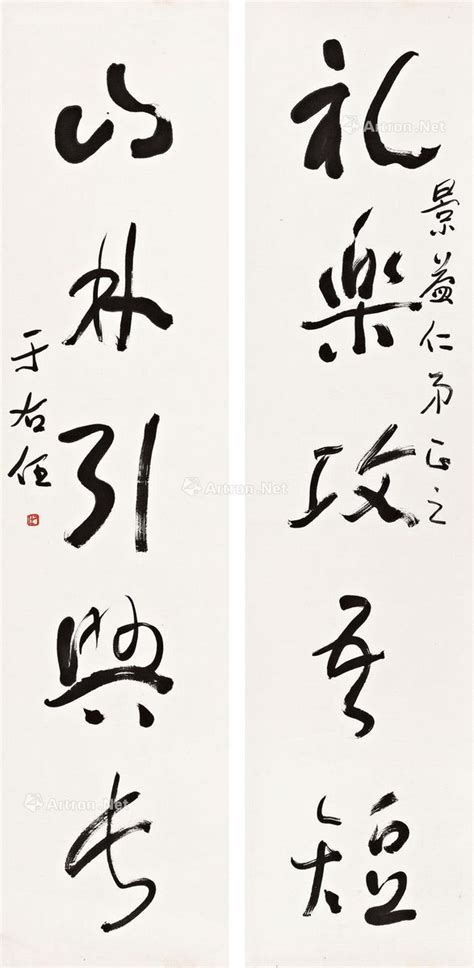 景益仁弟正之
礼樂攻吾短
山林引興長
于右任
Artron.Net
Artron.Net
Artron.Net
Artron.Net